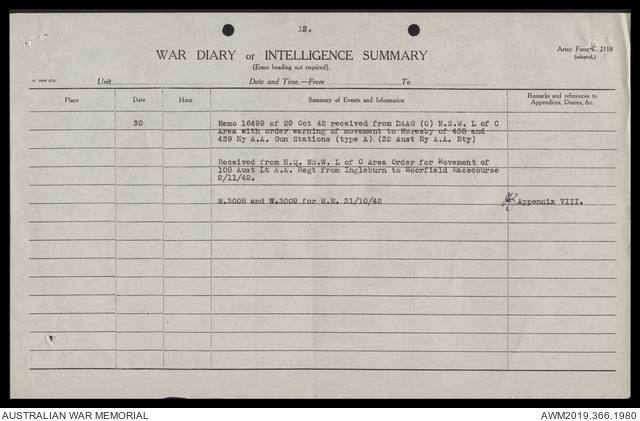 12.
WAR DIARY or INTELLIGENCE SUMMARY
Army Form C. 2118
(Erase heading not required).
(adapted.)
Unit
Date and Time.—From
To
Place
Date
Hour
Summary of Events and Information
Remarks and references to
Appendices, Diaries, &c.
30
Memo 16499 of 29 Oct 42 received from DAAG (O) N.S.W. L of C
Area with order warning of movement to Moresby of 438 and
439 Hy A.A. Gun Stations (type A) (32 Aust Hy A.A. Bty)
Received from H.Q. NS.W. L of C Area Order for Movement of
108 Aust Lt A.A. Regt from Ingleburn to Moorfield Racecourse
2/11/42.
W.3008 and W.3009 for W.E. 31/10/42
Appendix VIII.
AUSTRALIAN WAR MEMORIAL
AWM2019.366.1980